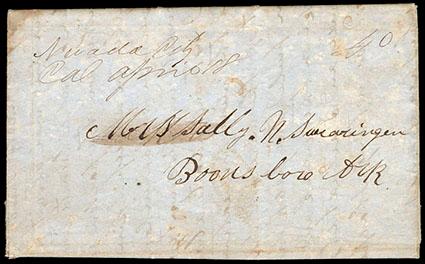 Nevada City
Cal april 18
40
Mrs Sally. N. Swaringen
Boonsboro Ark